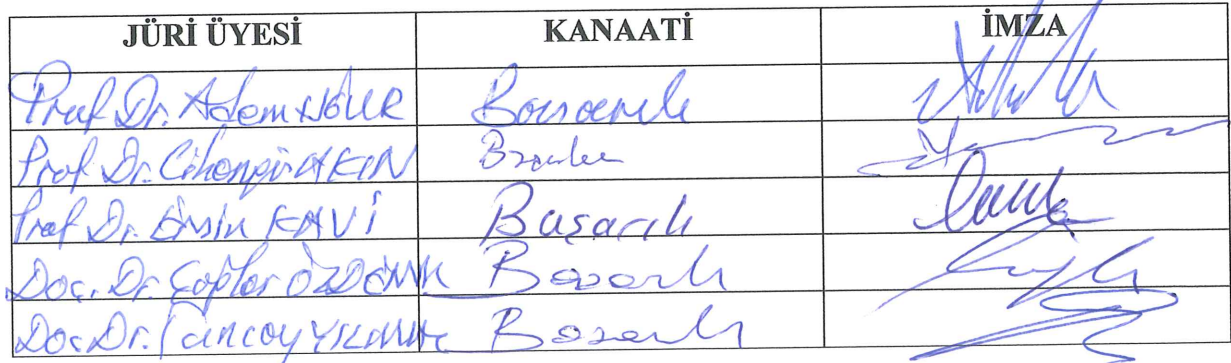 JÜRİ ÜYESİ KANAATİ İMZA
Prof Dr. Adem Başarılı
Prof. Dr. Cihangir AKIN Başarılı
Prof Dr. Ersin KAVİ Başarılı
Doç. Dr. Çağlar ÖZDEMİR Başarılı
Doç. Dr. YILMAZ Başarılı